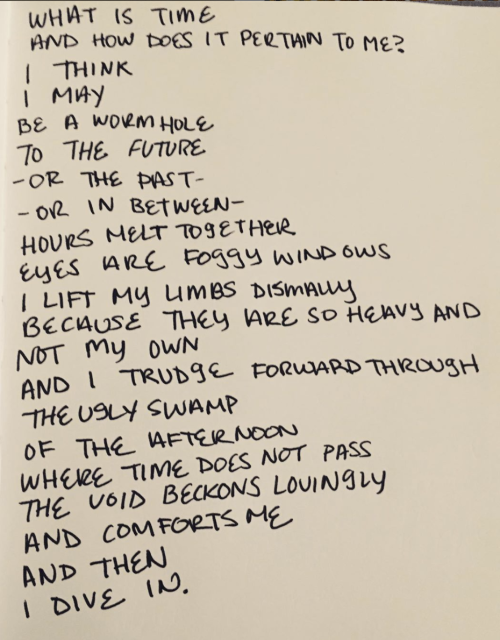 WHAT IS TIME
AND HOW DOES IT PERTAIN TO ME?
I THINK
I MAY
BE A WORMHOLE
TO THE FUTURE
-OR THE PAST-
-OR IN BETWEEN-
HOURS MELT TOGETHER
EYES ARE FOGGY WINDOWS
I LIFT MY LIMBS DISMALLY
BECAUSE THEY ARE SO HEAVY AND
NOT MY OWN
AND I TRUDGE FORWARD THROUGH
THE UGLY SWAMP
OF THE AFTERNOON
WHERE TIME DOES NOT PASS
THE VOID BECKONS LOVINGLY
AND COMFORTS ME
AND THEN
I DIVE IN.